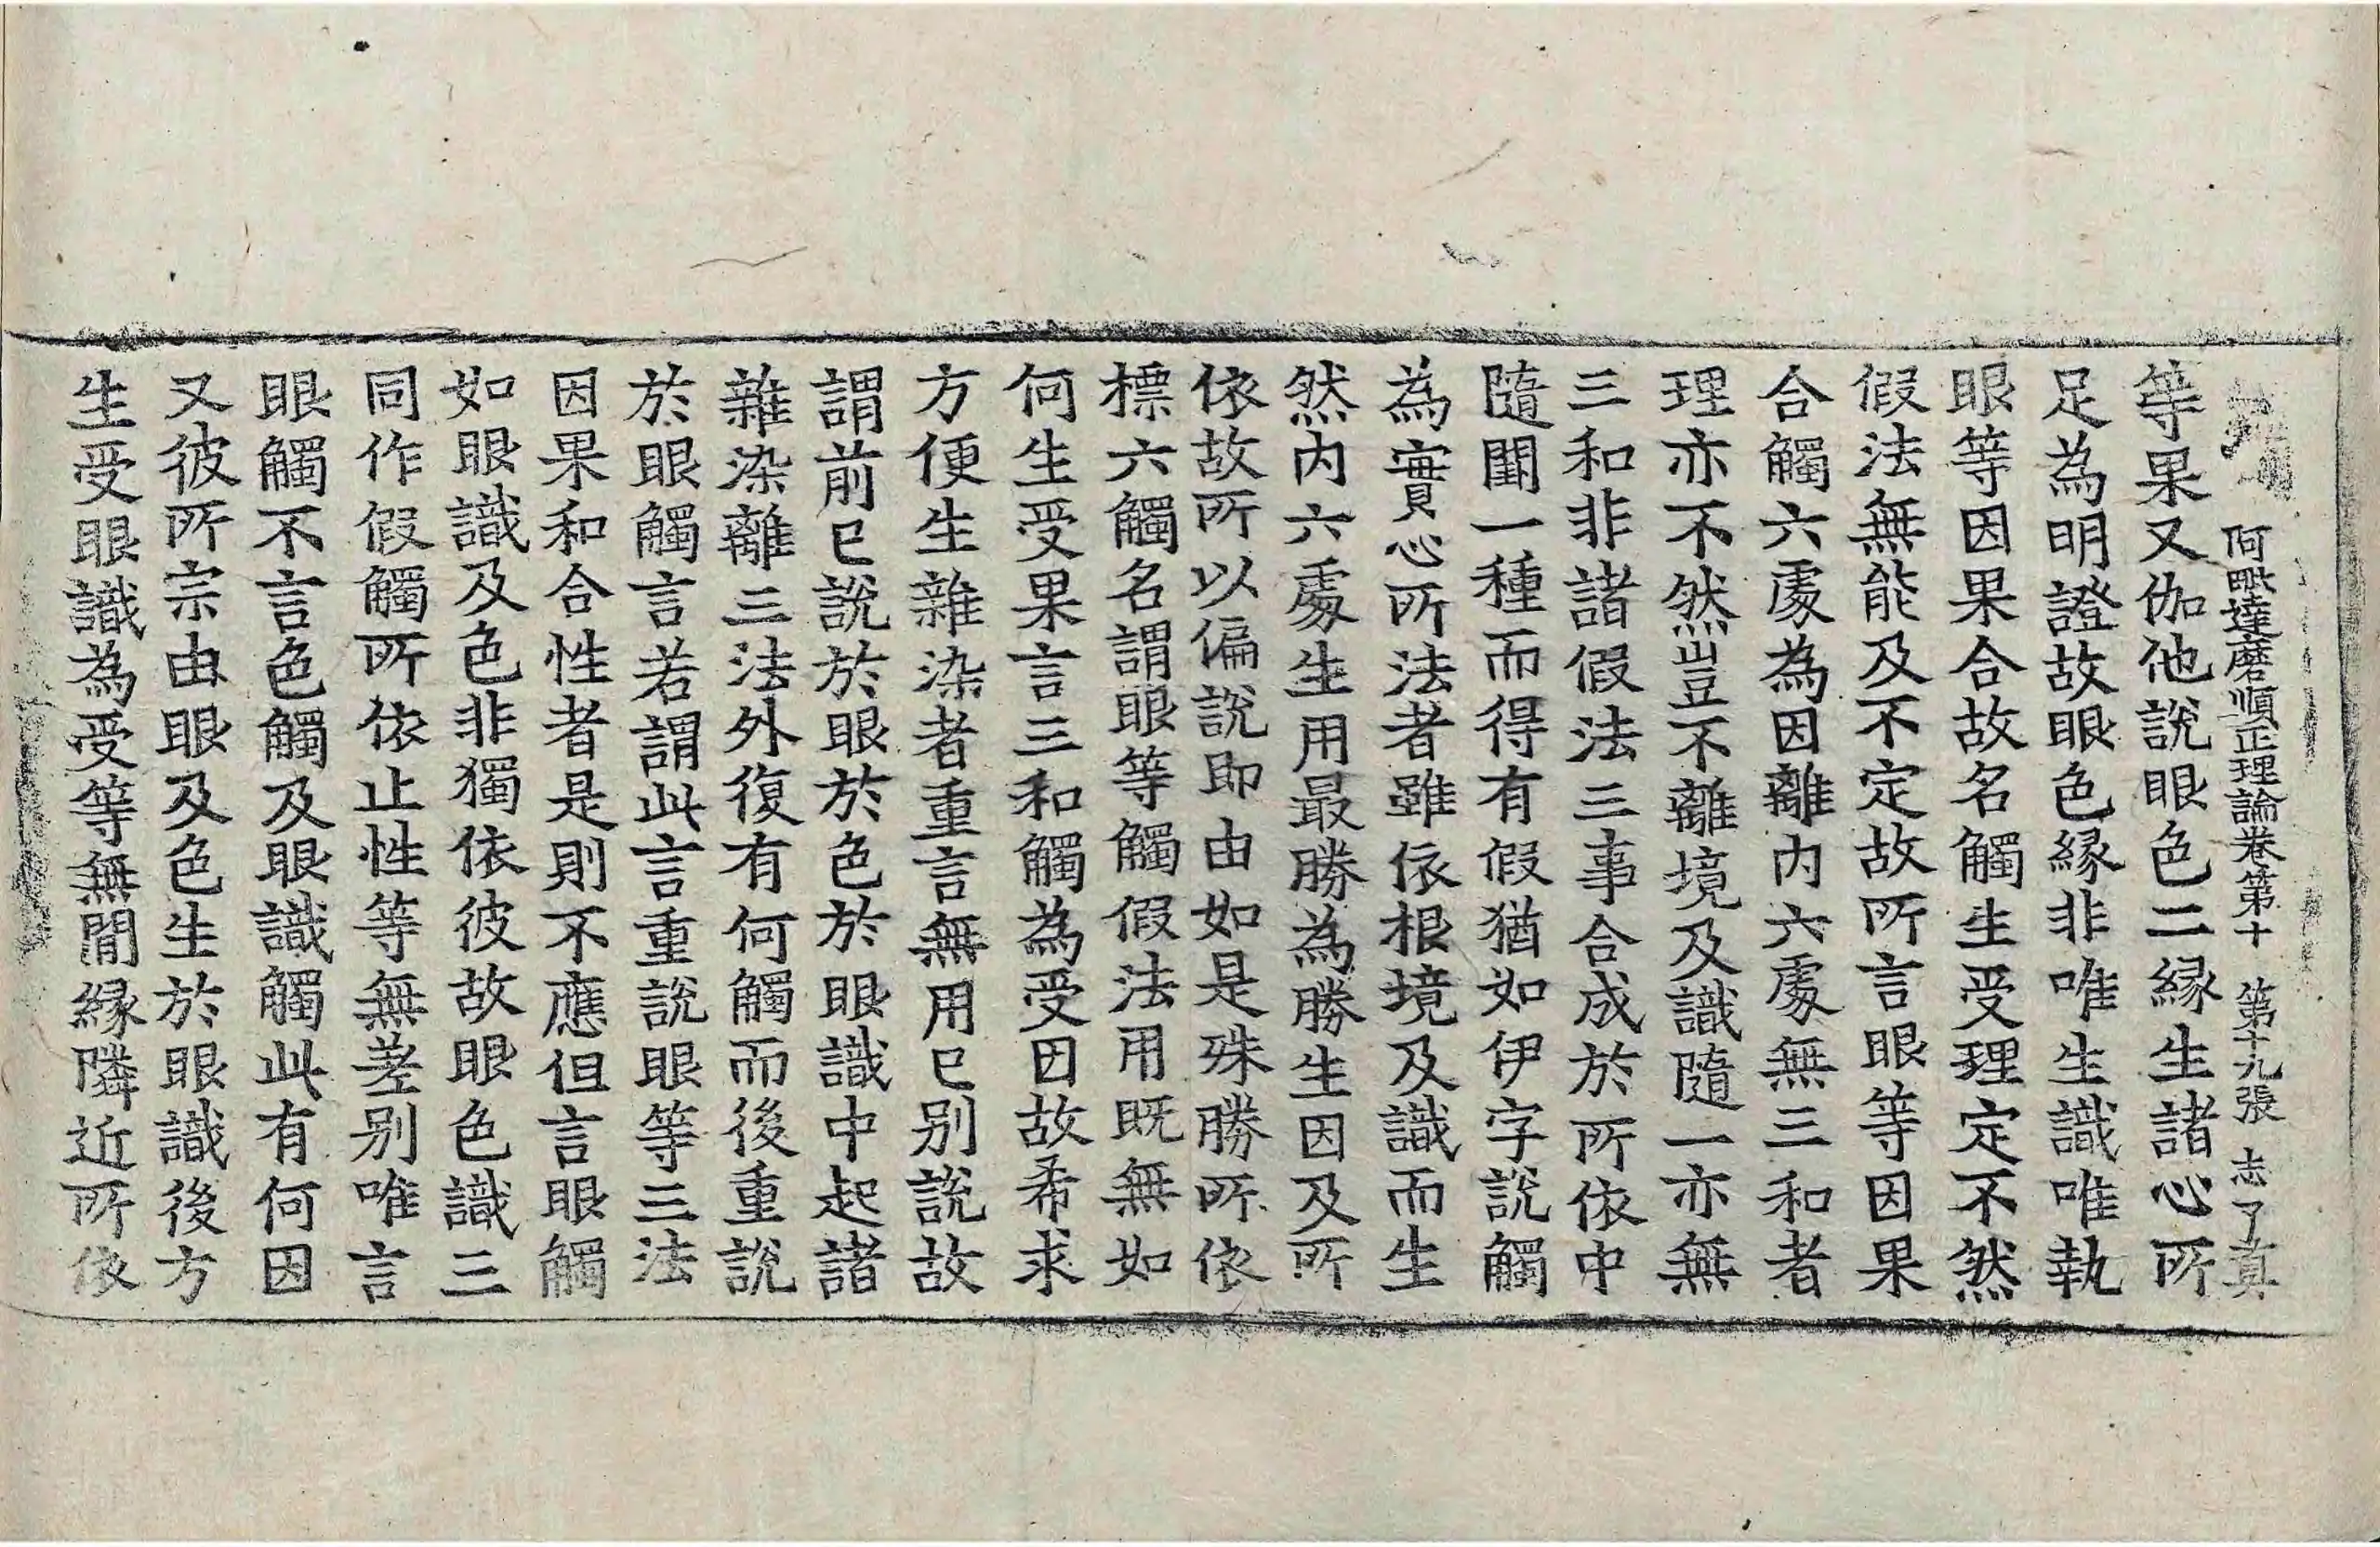 阿毗達磨順正理論卷第十 第十九張 志 了真
等果又伽他說眼色二緣生諸心所
足為明證故眼色緣非唯生識唯執
眼等因果合故名觸生受理定不然
假法無能及不定故所言眼等因果
合觸六處為因離內六處無三和者
理亦不然豈不離境及識隨一亦無
三和非諸假法三事合成於所依中
隨闕一種而得有假猶如伊字說觸
為實心所法者雖依根境及識而生
然內六處生用最勝為勝生因及所
依故所以偏說即由如是殊勝所依
標六觸名謂眼等觸假法用既無如
何生受果言三和觸為受因故希求
方便生雜染者重言無用已別說故
謂前已說於眼於色於眼識中起諸
雜染離三法外復有何觸而後重說
於眼觸言若謂此言重說眼等三法
因果和合性者是則不應但言眼觸
如眼識及色非獨依彼故眼色識三
同作假觸所依止性等無差別唯言
眼觸不言色觸及眼識觸此有何因
又彼所宗由眼及色生於眼識後方
生受眼識為受等無間緣隣近所依